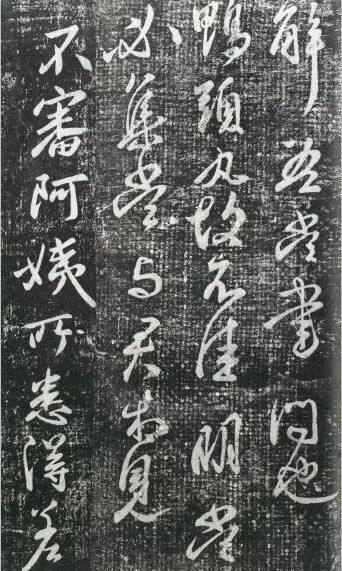 解吾當書問也
鴨頭丸故不佳明當
必集當与君相見
不審阿姨所患得差